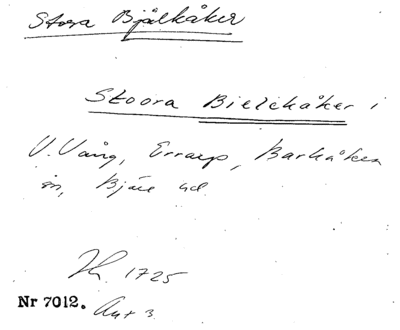 Stora Bjälkåker
Stoora Bielckåker i
V. Vång, Errarp, Barkåkra
sn, Bjäre hd
1725
Nr 7012. Akt 3